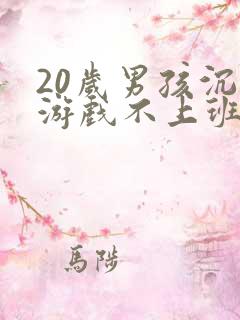 20歲男孩沉
游戲不上班
馬陟